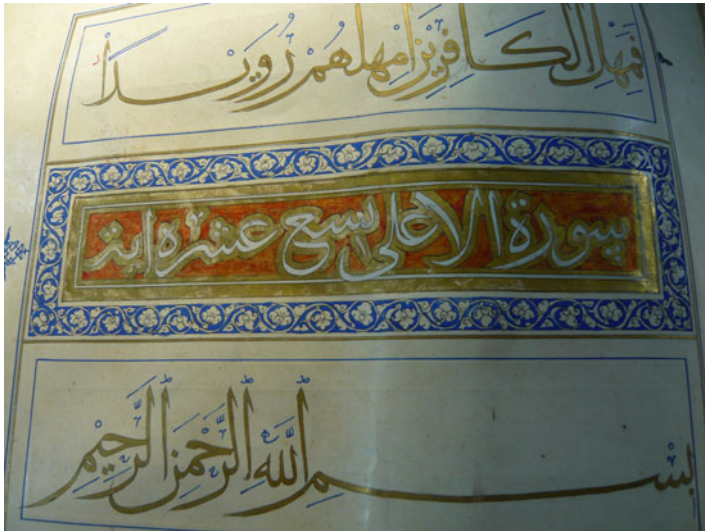 فَمَهِّلِ الْكَافِرِينَ أَمْهِلْهُمْ رُوَيْدًا
سورة الاعلى تسع عشره اية
بِسْمِ اللَّهِ الرَّحْمَنِ الرَّحِيمِ